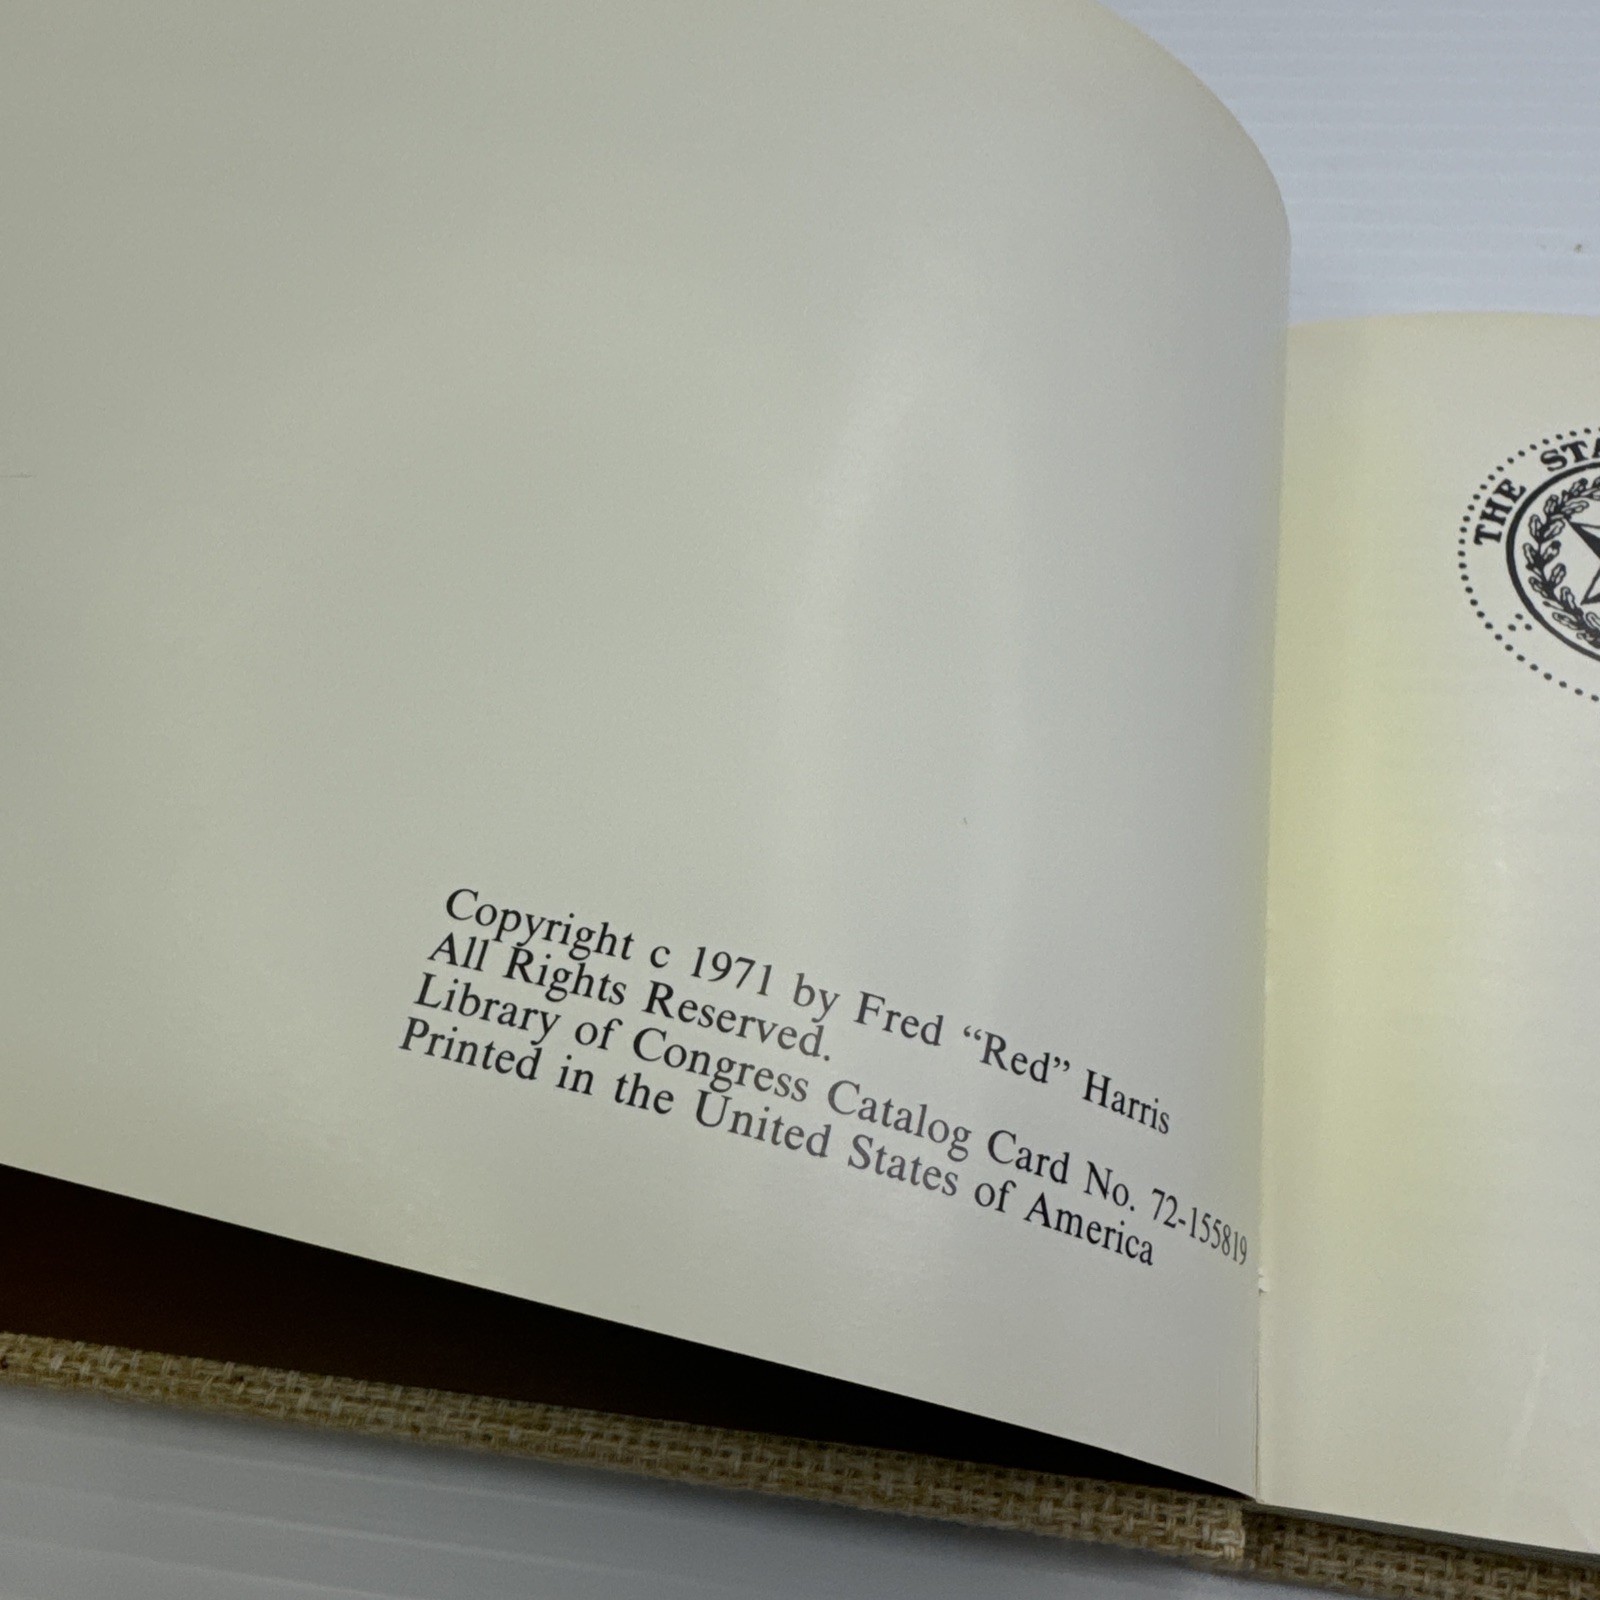 Copyright c 1971 by Fred “Red” Harris
All Rights Reserved.
Library of Congress Catalog Card No. 72-155819
Printed in the United States of America
THE STA